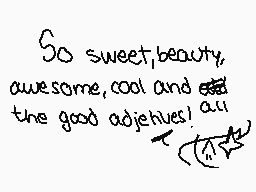 So sweet, beauty,
awesome, cool and all
the good adjetives!